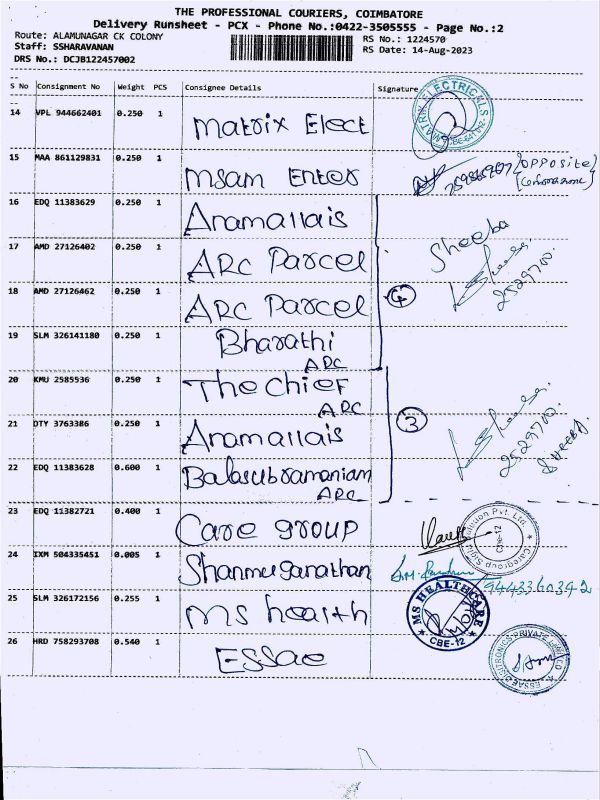 THE PROFESSIONAL COURIERS, COIMBATORE
Delivery Runsheet - PCX - Phone No.:0422-3505555 - Page No.:2
Route: ALAMUNAGAR CK COLONY RS No.: 1224570
Staff: SSHARAVANAN RS Date: 14-Aug-2023
DRS No.: DCJB122457002
S No Consignment No Weight PCS Consignee Details Signature
14 VPL 944662401 0.250 1 Matrix Elect
MATRIX ELECTRICALS
15 MAA 861129831 0.250 1 Msam Enter (OPPOSITE)
16 EDQ 11383629 0.250 1 Anamallais
Sheeba
17 AMD 27126402 0.250 1 ARC Parcel
2529700.
18 AMD 27126462 0.250 1 ARC Parcel 4
19 SLM 326141180 0.250 1 Bharathi
ARC
20 KMU 2585536 0.250 1 The Chief
ARC
21 DTY 3763386 0.250 1 Anamallais 3
2529700.
22 EDQ 11383628 0.600 1 Balasubramaniam
ARC
23 EDQ 11382721 0.400 1 Care group
CBE-12
24 IXM 504335451 0.005 1 Shanmuganathan
9443360342
25 SLM 326172156 0.255 1 MS health
MS HEALTHCARE
CBE-12
26 HRD 758293708 0.540 1 ESSAE